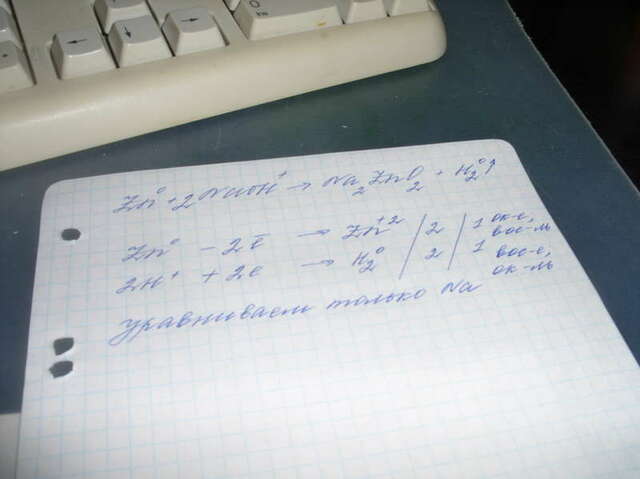 Zn⁰ + 2NaOH⁺ → Na₂ZnO₂ + H₂⁰↑
Zn⁰ - 2ē → Zn⁺² | 2 | 1 ок-е, вос-ль
2H⁺ + 2e → H₂⁰ | 2 | 1 вос-е, ок-ль
уравниваем только Na